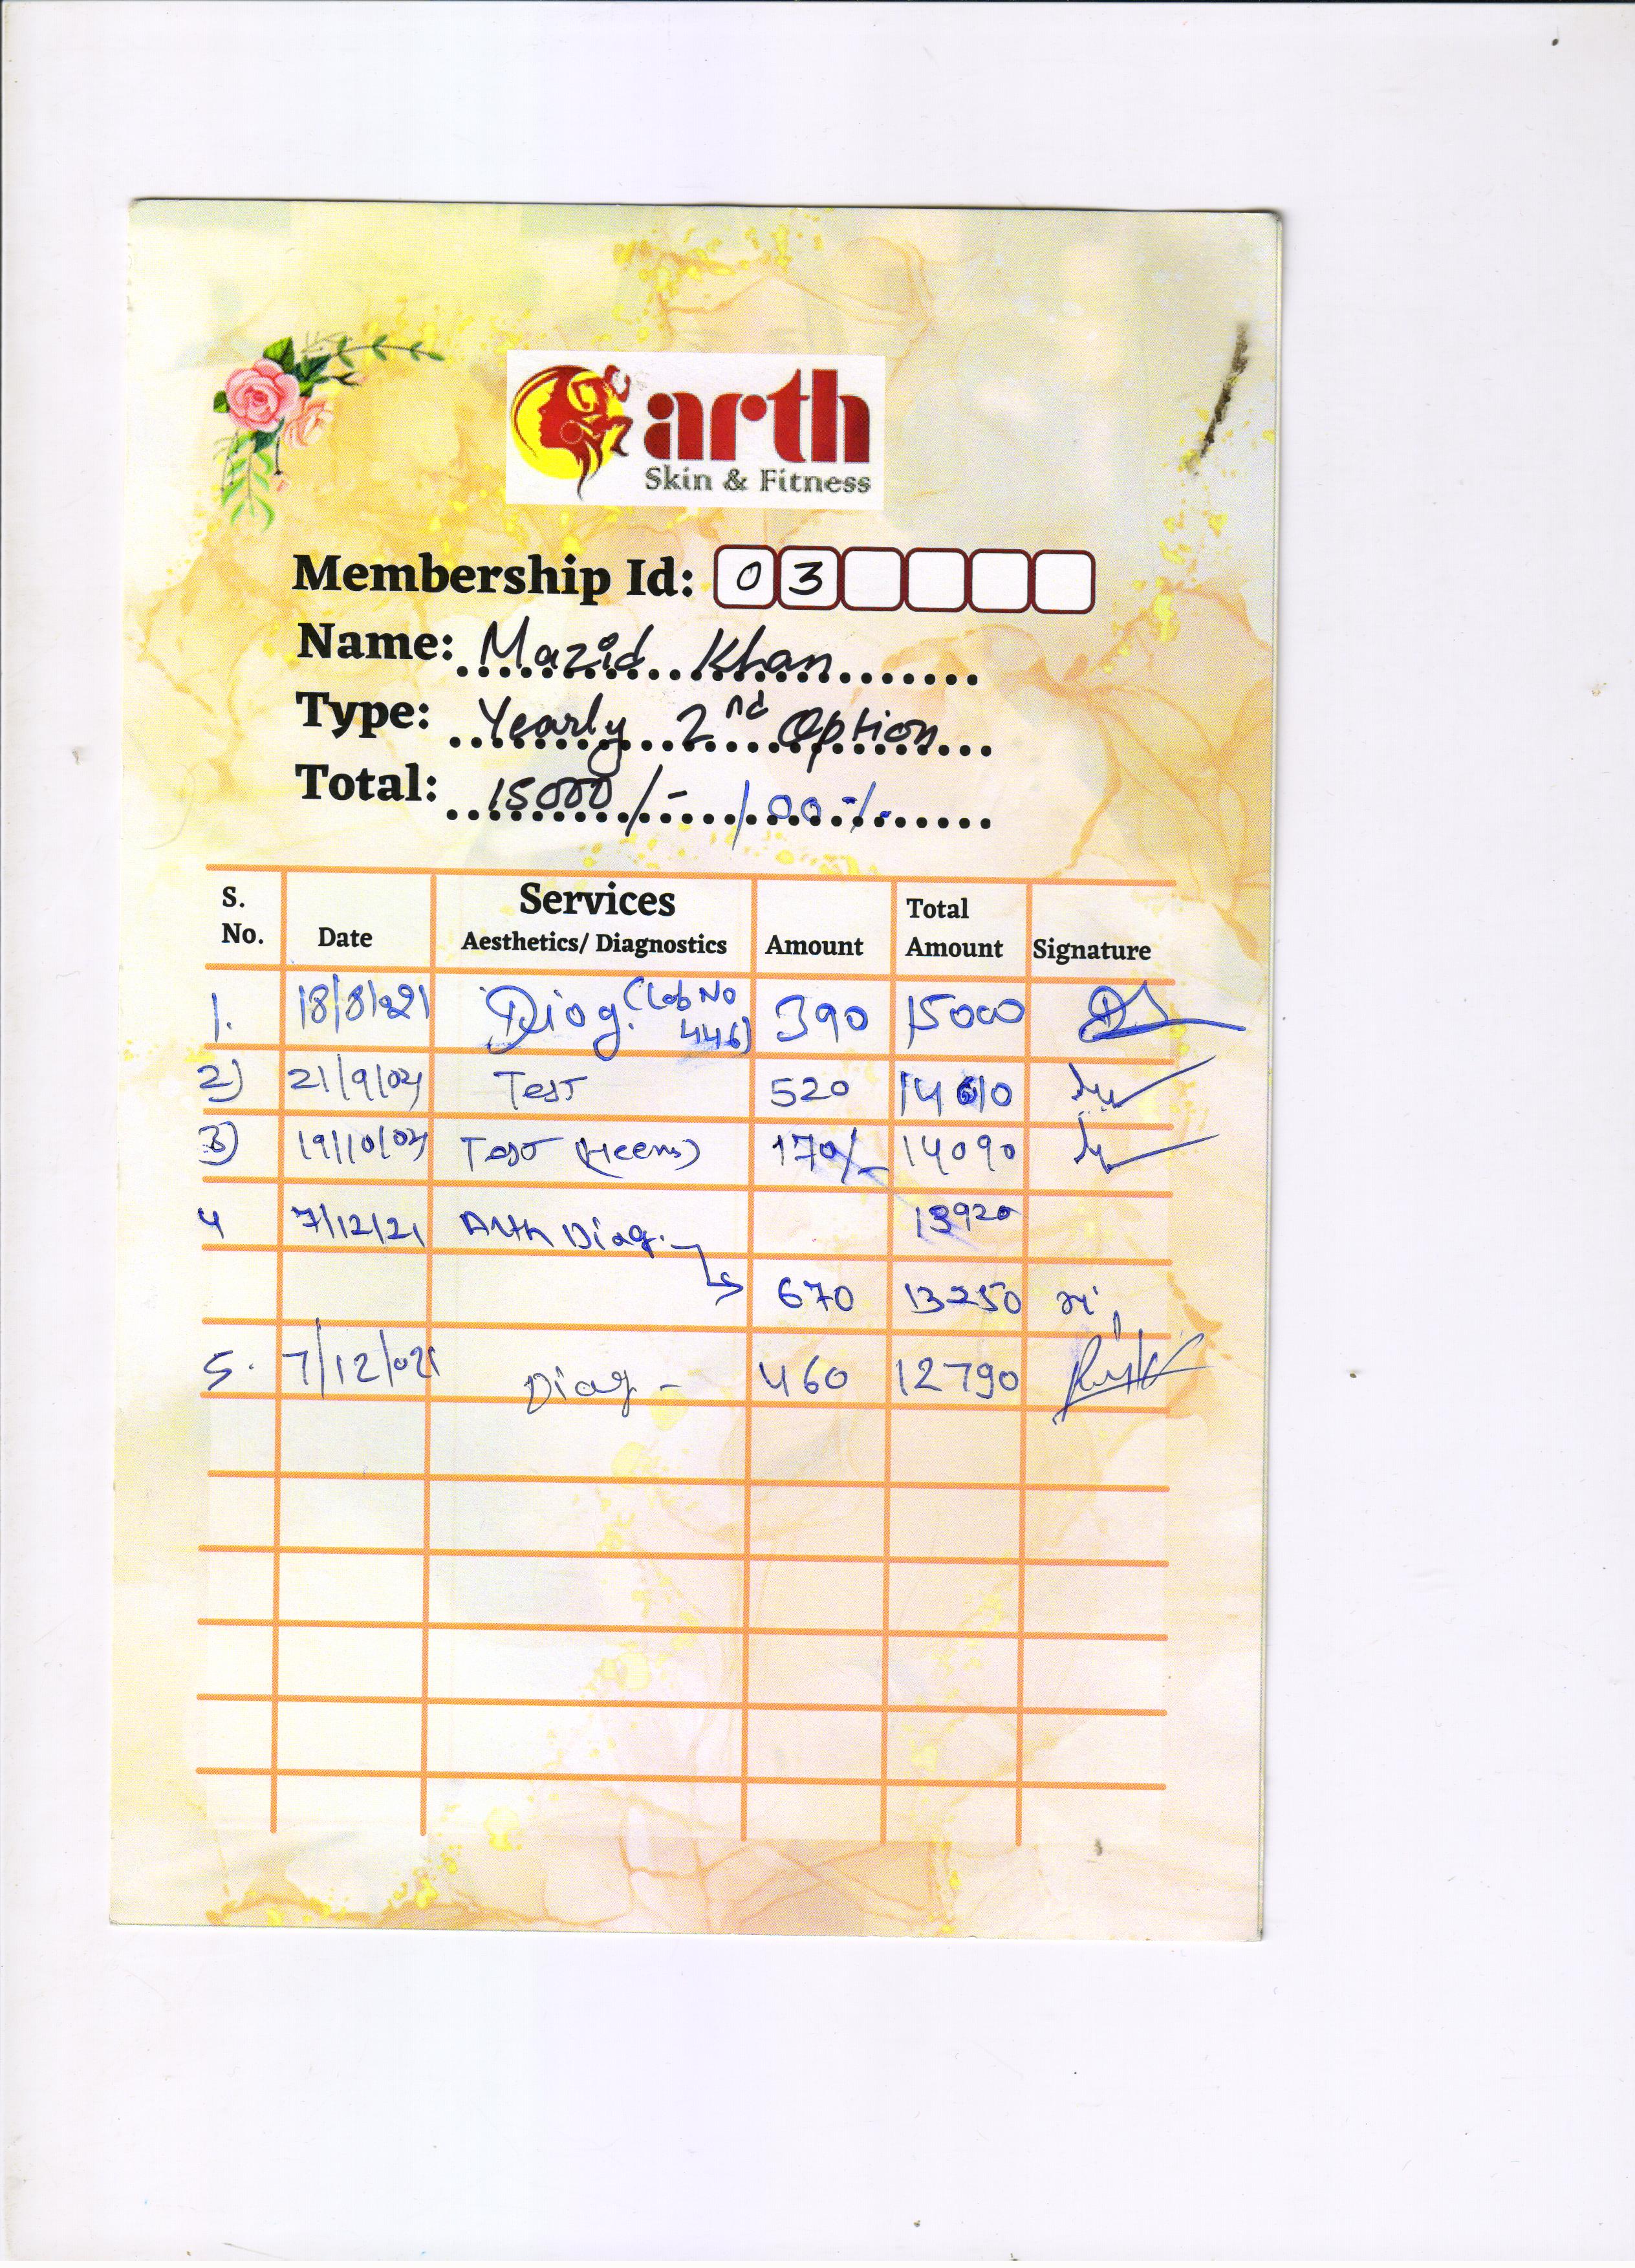 arth
Skin & Fitness
Membership Id: 0 3
Name: Mazid Khan
Type: Yearly 2nd Option
Total: 15000/- 100-/-
S. No. Date Services Aesthetics/ Diagnostics Amount Total Amount Signature
1. 18/8/221 Diag. (Lab No 446) 390 15000
2) 21/9/021 Test 520 14610
3) 19/10/021 Test 170/- 14090
4 7/12/21 Arth Diag. 13920
670 13250
5. 7/12/021 Diag - 460 12790